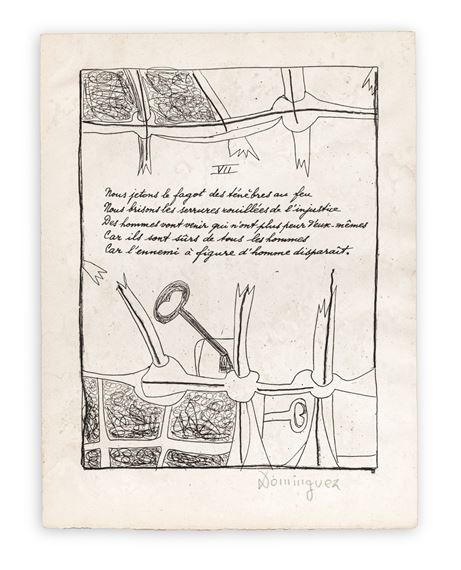 VII
Nous jetons le fagot des ténèbres au feu
Nous brisons les serrures rouillées de l'injustice
Des hommes vont venir qui n'ont plus peur d'eux-mêmes
Car ils sont sûrs de tous les hommes
Car l'ennemi à figure d'homme disparaît.
Dominguez